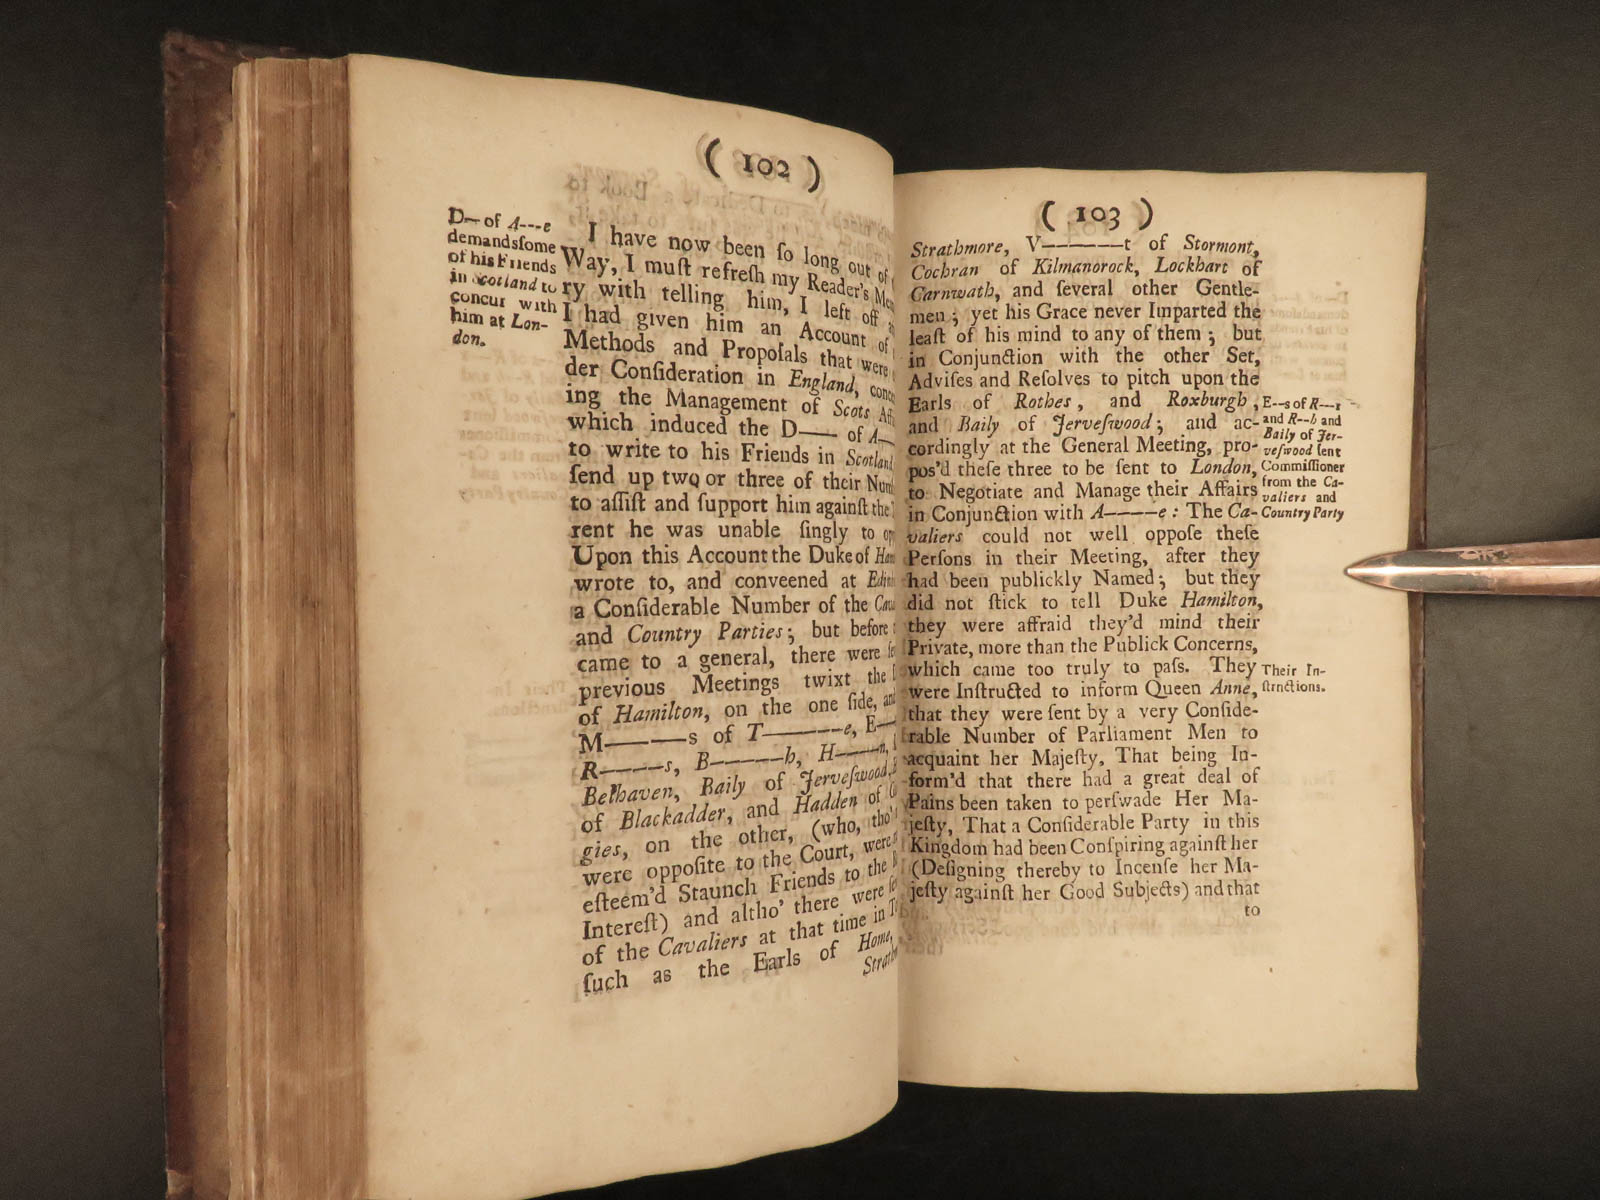 ( 102 )
D— of A---e
demands some
of his Friends
in Scotland to
concur with
him at Lon-
don.
I have now been ſo long out of
Way, I muſt refreſh my Reader's
ry with telling him, I left off
I had given him an Account of
Methods and Propoſals that were
der Conſideration in England,
ing the Management of Scots
which induced the D—— of A—
to write to his Friends in Scotland
ſend up two or three of their
to aſſiſt and ſupport him againſt the
rent he was unable ſingly to
Upon this Account the Duke of
wrote to, and conveened at
a Conſiderable Number of the
and Country Parties; but before
came to a general, there were
previous Meetings twixt the
of Hamilton, on the one ſide,
M———s of T———e, E—
R———s, B———h, H———n,
Belhaven, Baily of Jerveſwood,
of Blackadder, and Hadden of
gies, on the other, (who, tho'
were oppoſite to the Court, were
eſteem'd Staunch Friends to the
Intereſt) and altho' there were
of the Cavaliers at that time in
ſuch as the Earls of Home,
( 103 )
Strathmore, V———t of Stormont,
Cochran of Kilmanorock, Lockhart of
Carnwath, and ſeveral other Gentle-
men; yet his Grace never Imparted the
leaſt of his mind to any of them; but
in Conjunction with the other Set,
Adviſes and Reſolves to pitch upon the
Earls of Rothes, and Roxburgh,
and Baily of Jerveſwood; and ac-
cordingly at the General Meeting, pro-
pos'd theſe three to be ſent to London,
to Negotiate and Manage their Affairs
in Conjunction with A———e: The Ca-
valiers could not well oppoſe theſe
Perſons in their Meeting, after they
had been publickly Named; but they
did not ſtick to tell Duke Hamilton,
they were affraid they'd mind their
Private, more than the Publick Concerns,
which came too truly to paſs. They
were Inſtructed to inform Queen Anne,
that they were ſent by a very Conſide-
rable Number of Parliament Men to
acquaint her Majeſty, That being In-
form'd that there had a great deal of
Pains been taken to perſwade Her Ma-
jeſty, That a Conſiderable Party in this
Kingdom had been Conſpiring againſt her
(Deſigning thereby to Incenſe her Ma-
jeſty againſt her Good Subjects) and that
to
E--s of R---s
and R--h and
Baily of Jer-
veſwood ſent
Commiſſioner
from the Ca-
valiers and
Country Party
Their In-
ſtructions.